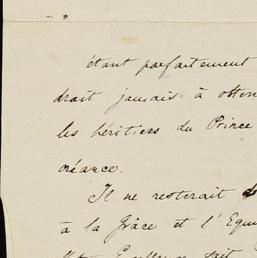 étant parfaitement
drait jamais à obten
les héritiers du Prince
créance.
Il ne resterait d
à la Grâce et l'Equi
Votre Excellence sait